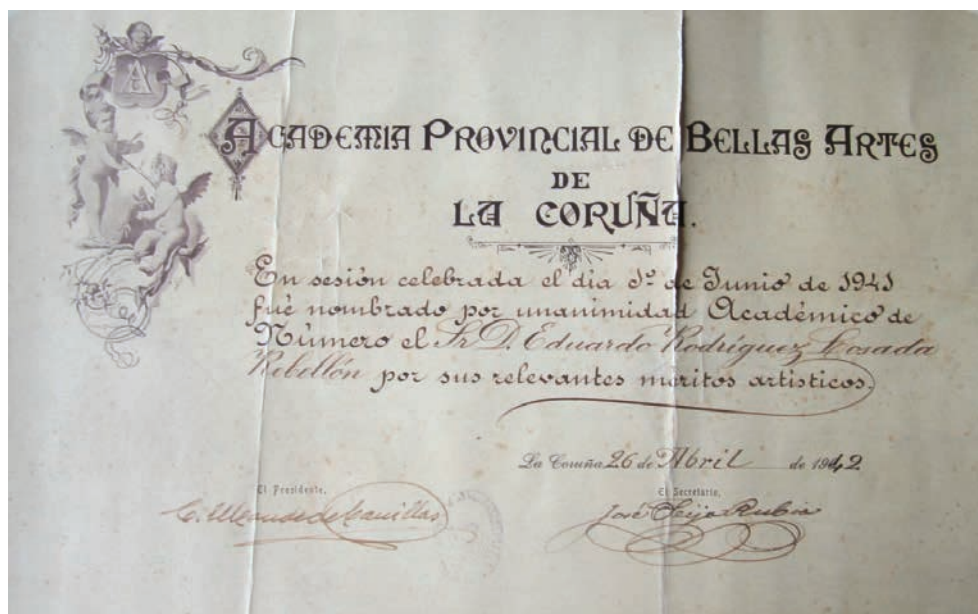 ACADEMIA PROVINCIAL DE BELLAS ARTES
DE
LA CORUÑA.
En sesión celebrada el día 1º de Junio de 1941
fué nombrado por unanimidad Académico de
Número el Sr. D. Eduardo Rodríguez Losada
Rebellón por sus relevantes méritos artísticos.
La Coruña 26 de Abril de 1942
El Presidente,
El Secretario,
José Rubia